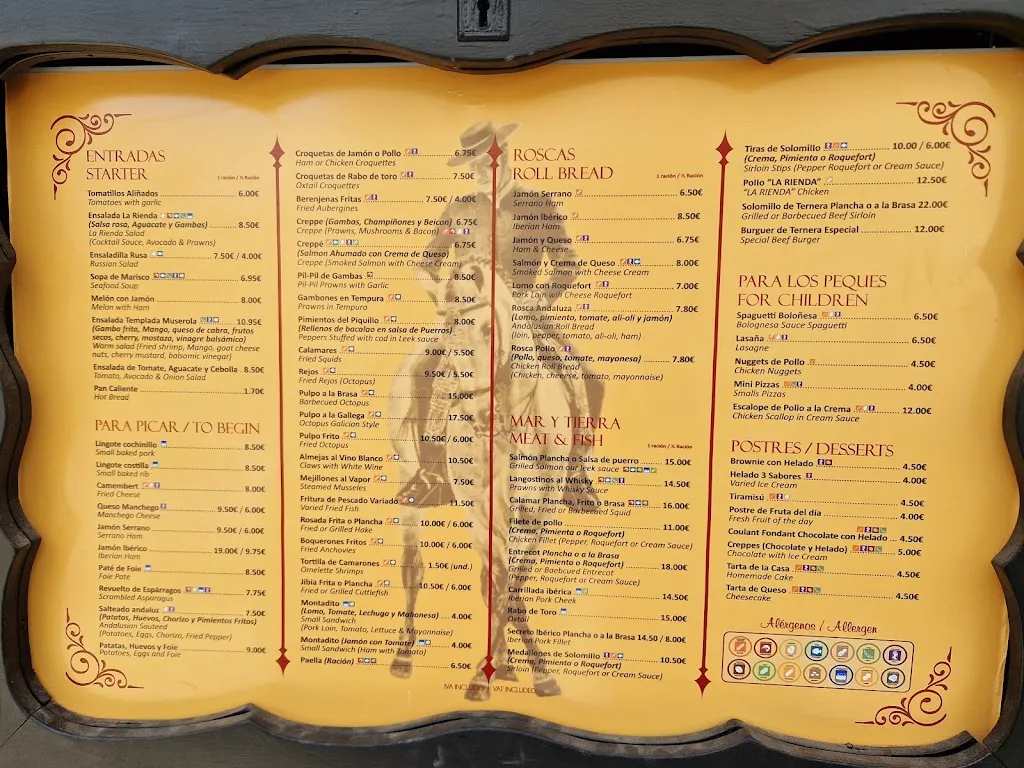 ENTRADAS
STARTER
1 ración / ½ Ración
Tomatillos Aliñados 6.00€
Tomatoes with garlic
Ensalada La Rienda
(Salsa rosa, Aguacate y Gambas) 8.50€
La Rienda Salad
(Cocktail Sauce, Avocado & Prawns)
Ensaladilla Rusa 7.50€ / 4.00€
Russian Salad
Sopa de Marisco 6.95€
Seafood Soup
Melón con Jamón 8.00€
Melon with Ham
Ensalada Templada Muserola 10.95€
(Gamba frita, Mango, queso de cabra, frutos
secos, cherry, mostaza, vinagre balsámico)
Warm salad (Fried shrimp, Mango, goat cheese
nuts, cherry mustard, balsamic vinegar)
Ensalada de Tomate, Aguacate y Cebolla 8.50€
Tomato, Avocado & Onion Salad
Pan Caliente 1.70€
Hot Bread
PARA PICAR / TO BEGIN
Lingote cochinillo 8.50€
Small baked pork
Lingote costilla 8.50€
Small baked rib
Camembert 8.00€
Fried Cheese
Queso Manchego 9.50€ / 6.00€
Manchego Cheese
Jamón Serrano 9.50€ / 6.00€
Serrano Ham
Jamón Ibérico 19.00€ / 9.75€
Iberian Ham
Paté de Foie 8.50€
Foie Pate
Revuelto de Espárragos 7.75€
Scrambled Asparragus
Salteado andaluz 7.50€
(Patatas, Huevos, Chorizo y Pimientos Fritos)
Andalusian Sauteed
(Potatoes, Eggs, Chorizo, Fried Pepper)
Patatas, Huevos y Foie 9.00€
Potatoes, Eggs and Foie
Croquetas de Jamón o Pollo 6.75€
Ham or Chicken Croquettes
Croquetas de Rabo de toro 7.50€
Oxtail Croquettes
Berenjenas Fritas 7.50€ / 4.00€
Fried Aubergines
Creppe (Gambas, Champiñones y Beicon) 6.75€
Creppe (Prawns, Mushrooms & Bacon)
Creppé 6.75€
(Salmon Ahumado con Crema de Queso)
Creppe (Smoked Salmon with Cheese Cream)
Pil-Pil de Gambas 8.50€
Pil-Pil Prawns with Garlic
Gambones en Tempura 8.50€
Prawns in Tempura
Pimientos del Piquillo 8.00€
(Rellenos de bacalao en salsa de Puerros)
Peppers Stuffed with cod in Leek sauce
Calamares 9.00€ / 5.50€
Fried Squids
Rejos 9.50€ / 5.50€
Fried Rejos (Octopus)
Pulpo a la Brasa 15.00€
Barbecued Octopus
Pulpo a la Gallega 17.50€
Octopus Galician Style
Pulpo Frito 10.50€ / 6.00€
Fried Octopus
Almejas al Vino Blanco 10.50€
Claws with White Wine
Mejillones al Vapor 7.50€
Steamed Musseles
Fritura de Pescado Variado 11.50€
Varied Fried Fish
Rosada Frita o Plancha 10.00€ / 6.00€
Fried or Grilled Hake
Boquerones Fritos 10.00€ / 6.00€
Fried Anchovies
Tortilla de Camarones 1.50€ (und.)
Omelette Shrimps
Jibia Frita o Plancha 10.50€ / 6.00€
Fried or Grilled Cuttlefish
Montadito
(Lomo, Tomate, Lechuga y Mahonesa) 4.00€
Small Sandwich
(Pork Loin, Tomato, Lettuce & Mayonnaise)
Montadito (Jamón con Tomate) 4.00€
Small Sandwich (Ham with Tomato)
Paella (Ración) 6.50€
ROSCAS
ROLL BREAD
1 ración / ½ Ración
Jamón Serrano 6.50€
Serrano Ham
Jamón Ibérico 8.50€
Iberian Ham
Jamón y Queso 6.75€
Ham & Cheese
Salmón y Crema de Queso 8.00€
Smoked Salmon with Cheese Cream
Lomo con Roquefort 7.00€
Pork Loin with Cheese Roquefort
Rosca Andaluza 7.80€
(Lomo, pimiento, tomate, ali-oli y jamón)
Andalusian Roll Bread
(loin, pepper, tomato, ali-oli, ham)
Rosca Pollo
(Pollo, queso, tomate, mayonesa) 7.80€
Chicken Roll Bread
(Chicken, cheese, tomato, mayonnaise)
MAR Y TIERRA
MEAT & FISH
1 ración / ½ Ración
Salmón Plancha o Salsa de puerro 15.00€
Grilled Salmon our leek sauce
Langostinos al Whisky 14.50€
Prawns with Whisky Sauce
Calamar Plancha, Frito o Brasa 16.00€
Grilled, Fried or Barbecued Squid
Filete de pollo 11.00€
(Crema, Pimienta o Roquefort)
Chicken Fillet (Pepper, Roquefort or Cream Sauce)
Entrecot Plancha o a la Brasa
(Crema, Pimienta o Roquefort) 18.00€
Grilled or Barbecued Entrecot
(Pepper, Roquefort or Cream Sauce)
Carrillada ibérica 14.50€
Iberian Pork Cheek
Rabo de Toro 15.00€
Oxtail
Secreto Ibérico Plancha o a la Brasa 14.50 / 8.00€
Iberian Pork Fillet
Medallones de Solomillo 10.50€
(Crema, Pimienta o Roquefort)
Sirloin (Pepper, Roquefort or Cream Sauce)
IVA INCLUIDO VAT INCLUDED
Tiras de Solomillo 10.00 / 6.00€
(Crema, Pimienta o Roquefort)
Sirloin Stips (Pepper Roquefort or Cream Sauce)
Pollo "LA RIENDA" 12.50€
"LA RIENDA" Chicken
Solomillo de Ternera Plancha o a la Brasa 22.00€
Grilled or Barbecued Beef Sirloin
Burguer de Ternera Especial 12.00€
Special Beef Burger
PARA LOS PEQUES
FOR CHILDREN
Spaguetti Boloñesa 6.50€
Bolognesa Sauce Spaguetti
Lasaña 6.50€
Lasagne
Nuggets de Pollo 4.50€
Chicken Nuggets
Mini Pizzas 4.00€
Smalls Pizzas
Escalope de Pollo a la Crema 12.00€
Chicken Scallop in Cream Sauce
POSTRES / DESSERTS
Brownie con Helado 4.50€
Helado 3 Sabores 4.00€
Varied Ice Cream
Tiramisú 4.50€
Postre de Fruta del día 4.00€
Fresh Fruit of the day
Coulant Fondant Chocolate con Helado 4.50€
Creppes (Chocolate y Helado) 5.00€
Chocolate with Ice Cream
Tarta de la Casa 4.50€
Homemade Cake
Tarta de Queso 4.50€
Cheesecake
Alérgenos / Allergen